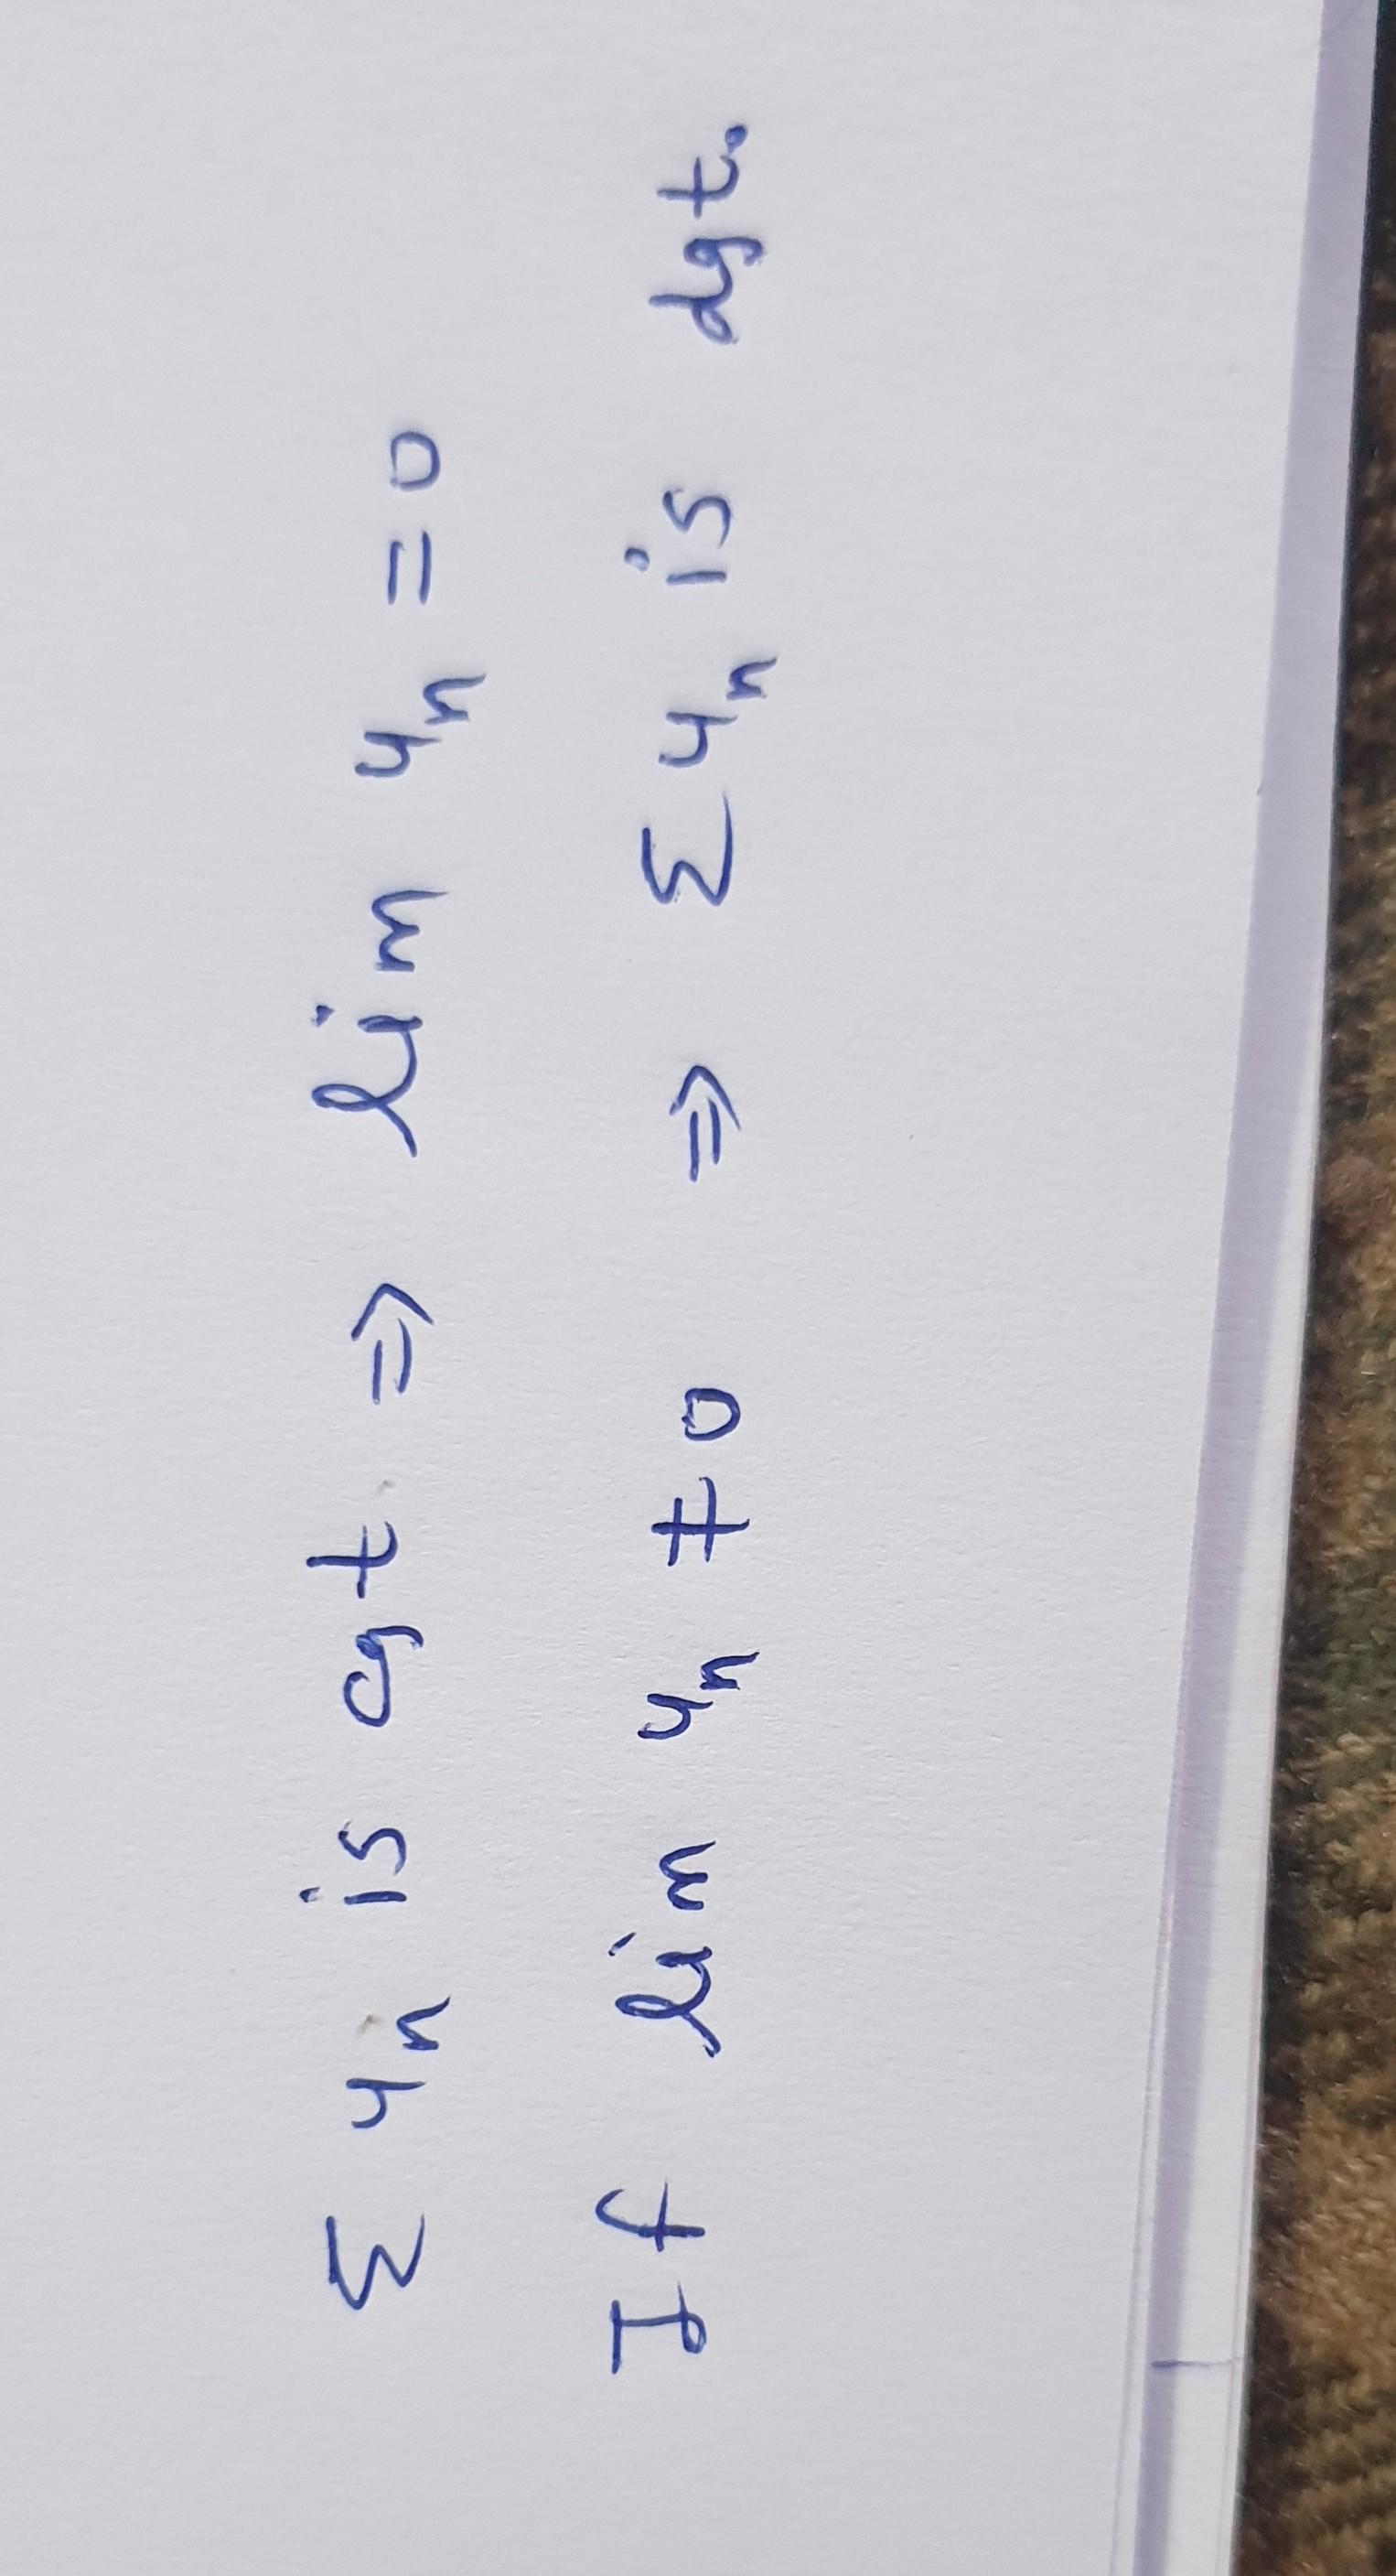 Σ uₙ is cgt ⇒ lim uₙ = 0
If lim uₙ ≠ 0 ⇒ Σ uₙ is dgt.